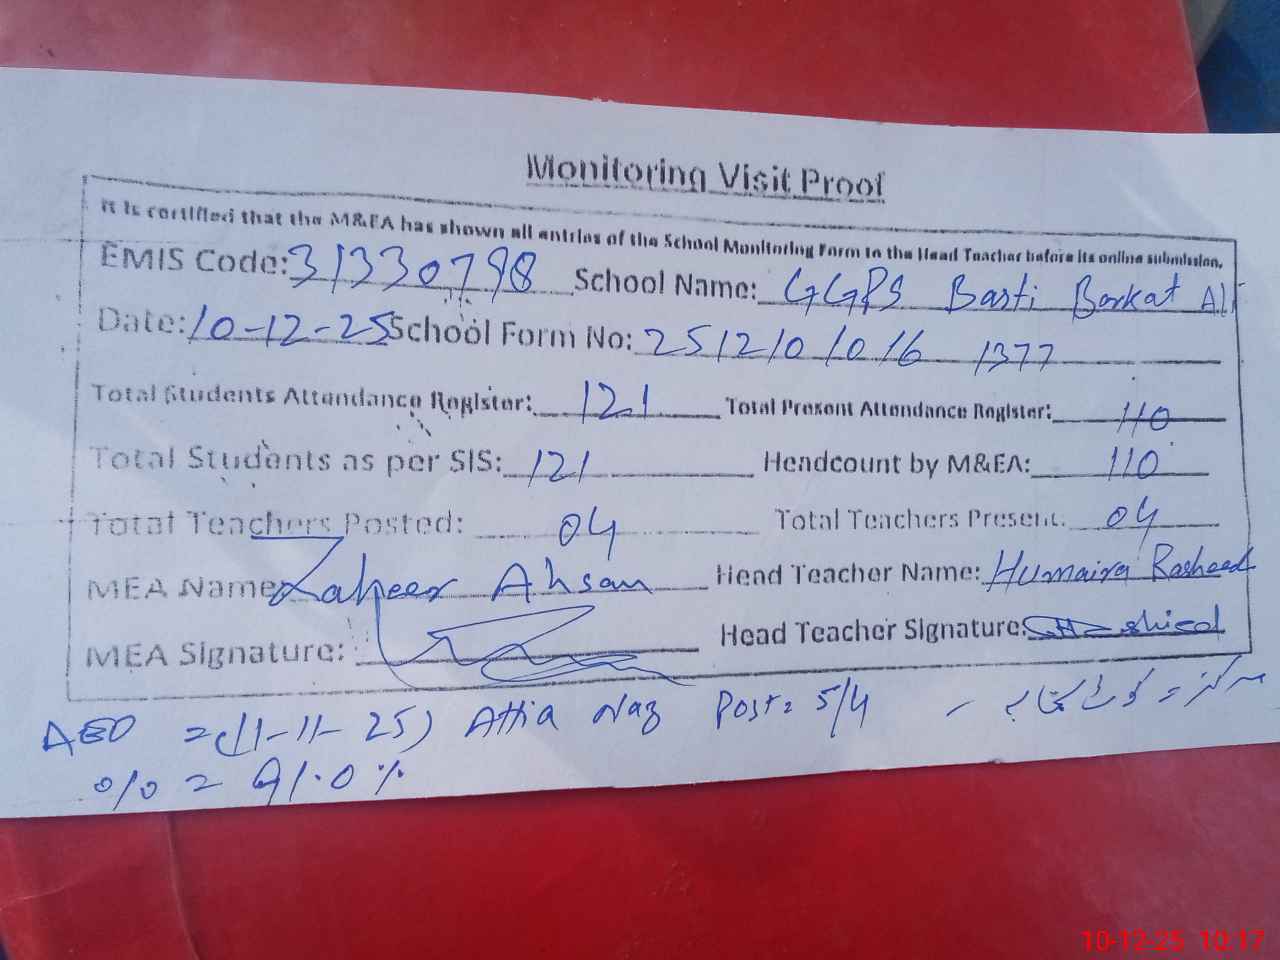 Monitoring Visit Proof
It is certified that the M&EA has shown all entries of the School Monitoring Form to the Head Teacher before its online submission.
EMIS Code: 31330798 School Name: GGPS Basti Barkat Ali
Date: 10-12-25 School Form No: 25121010161377
Total Students Attendance Register: 121 Total Present Attendance Register: 110
Total Students as per SIS: 121 Headcount by M&EA: 110
Total Teachers Posted: 04 Total Teachers Present: 04
MEA Name: Zaheer Ahsan Head Teacher Name: Humaira Rasheed
MEA Signature: Head Teacher Signature:
AEO = (11-11-25) Attia Naz Post= 5/4 مرکز =
% = 91.0%
10-12-25 10:17